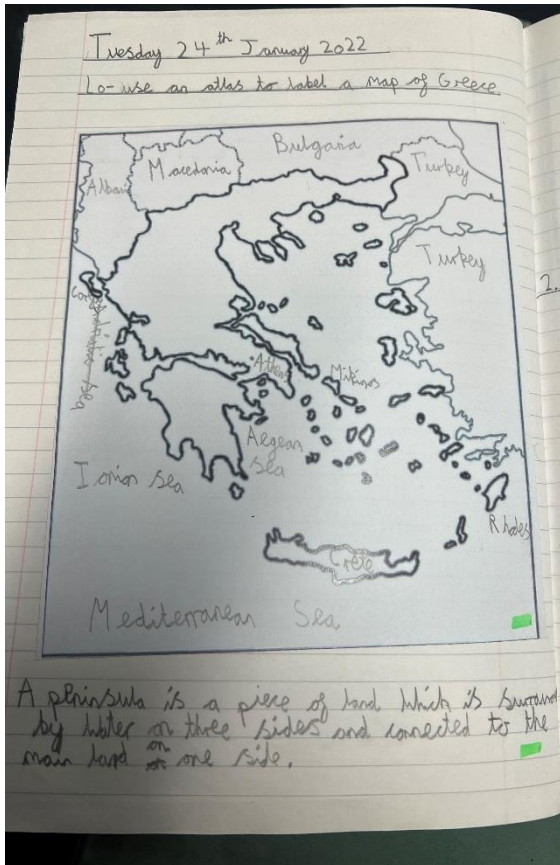 Tuesday 24th January 2022
Lo- use an atlas to label a map of Greece
Bulgaria
Macedonia
Turkey
Alban
Turkey
2.
Adriatic sea
Athens
Mikinos
Aegean
sea
Ionian sea
Rhodes
Crete
Mediterranean Sea
A peninsula is a piece of land which is surroun
by water on three sides and connected to the
main land on one side.